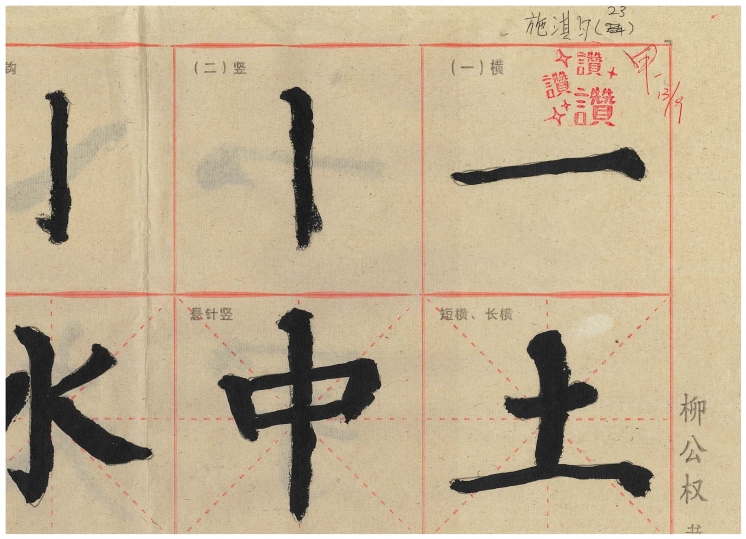 施淇
23
(24)
甲
13/9
讚
讚
讚
(一)横
一
短横、长横
土
(二)竖
丨
悬针竖
中
钩
亅
水
柳公权
书